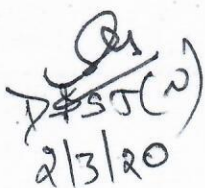 D&SJ(N)
2/3/20